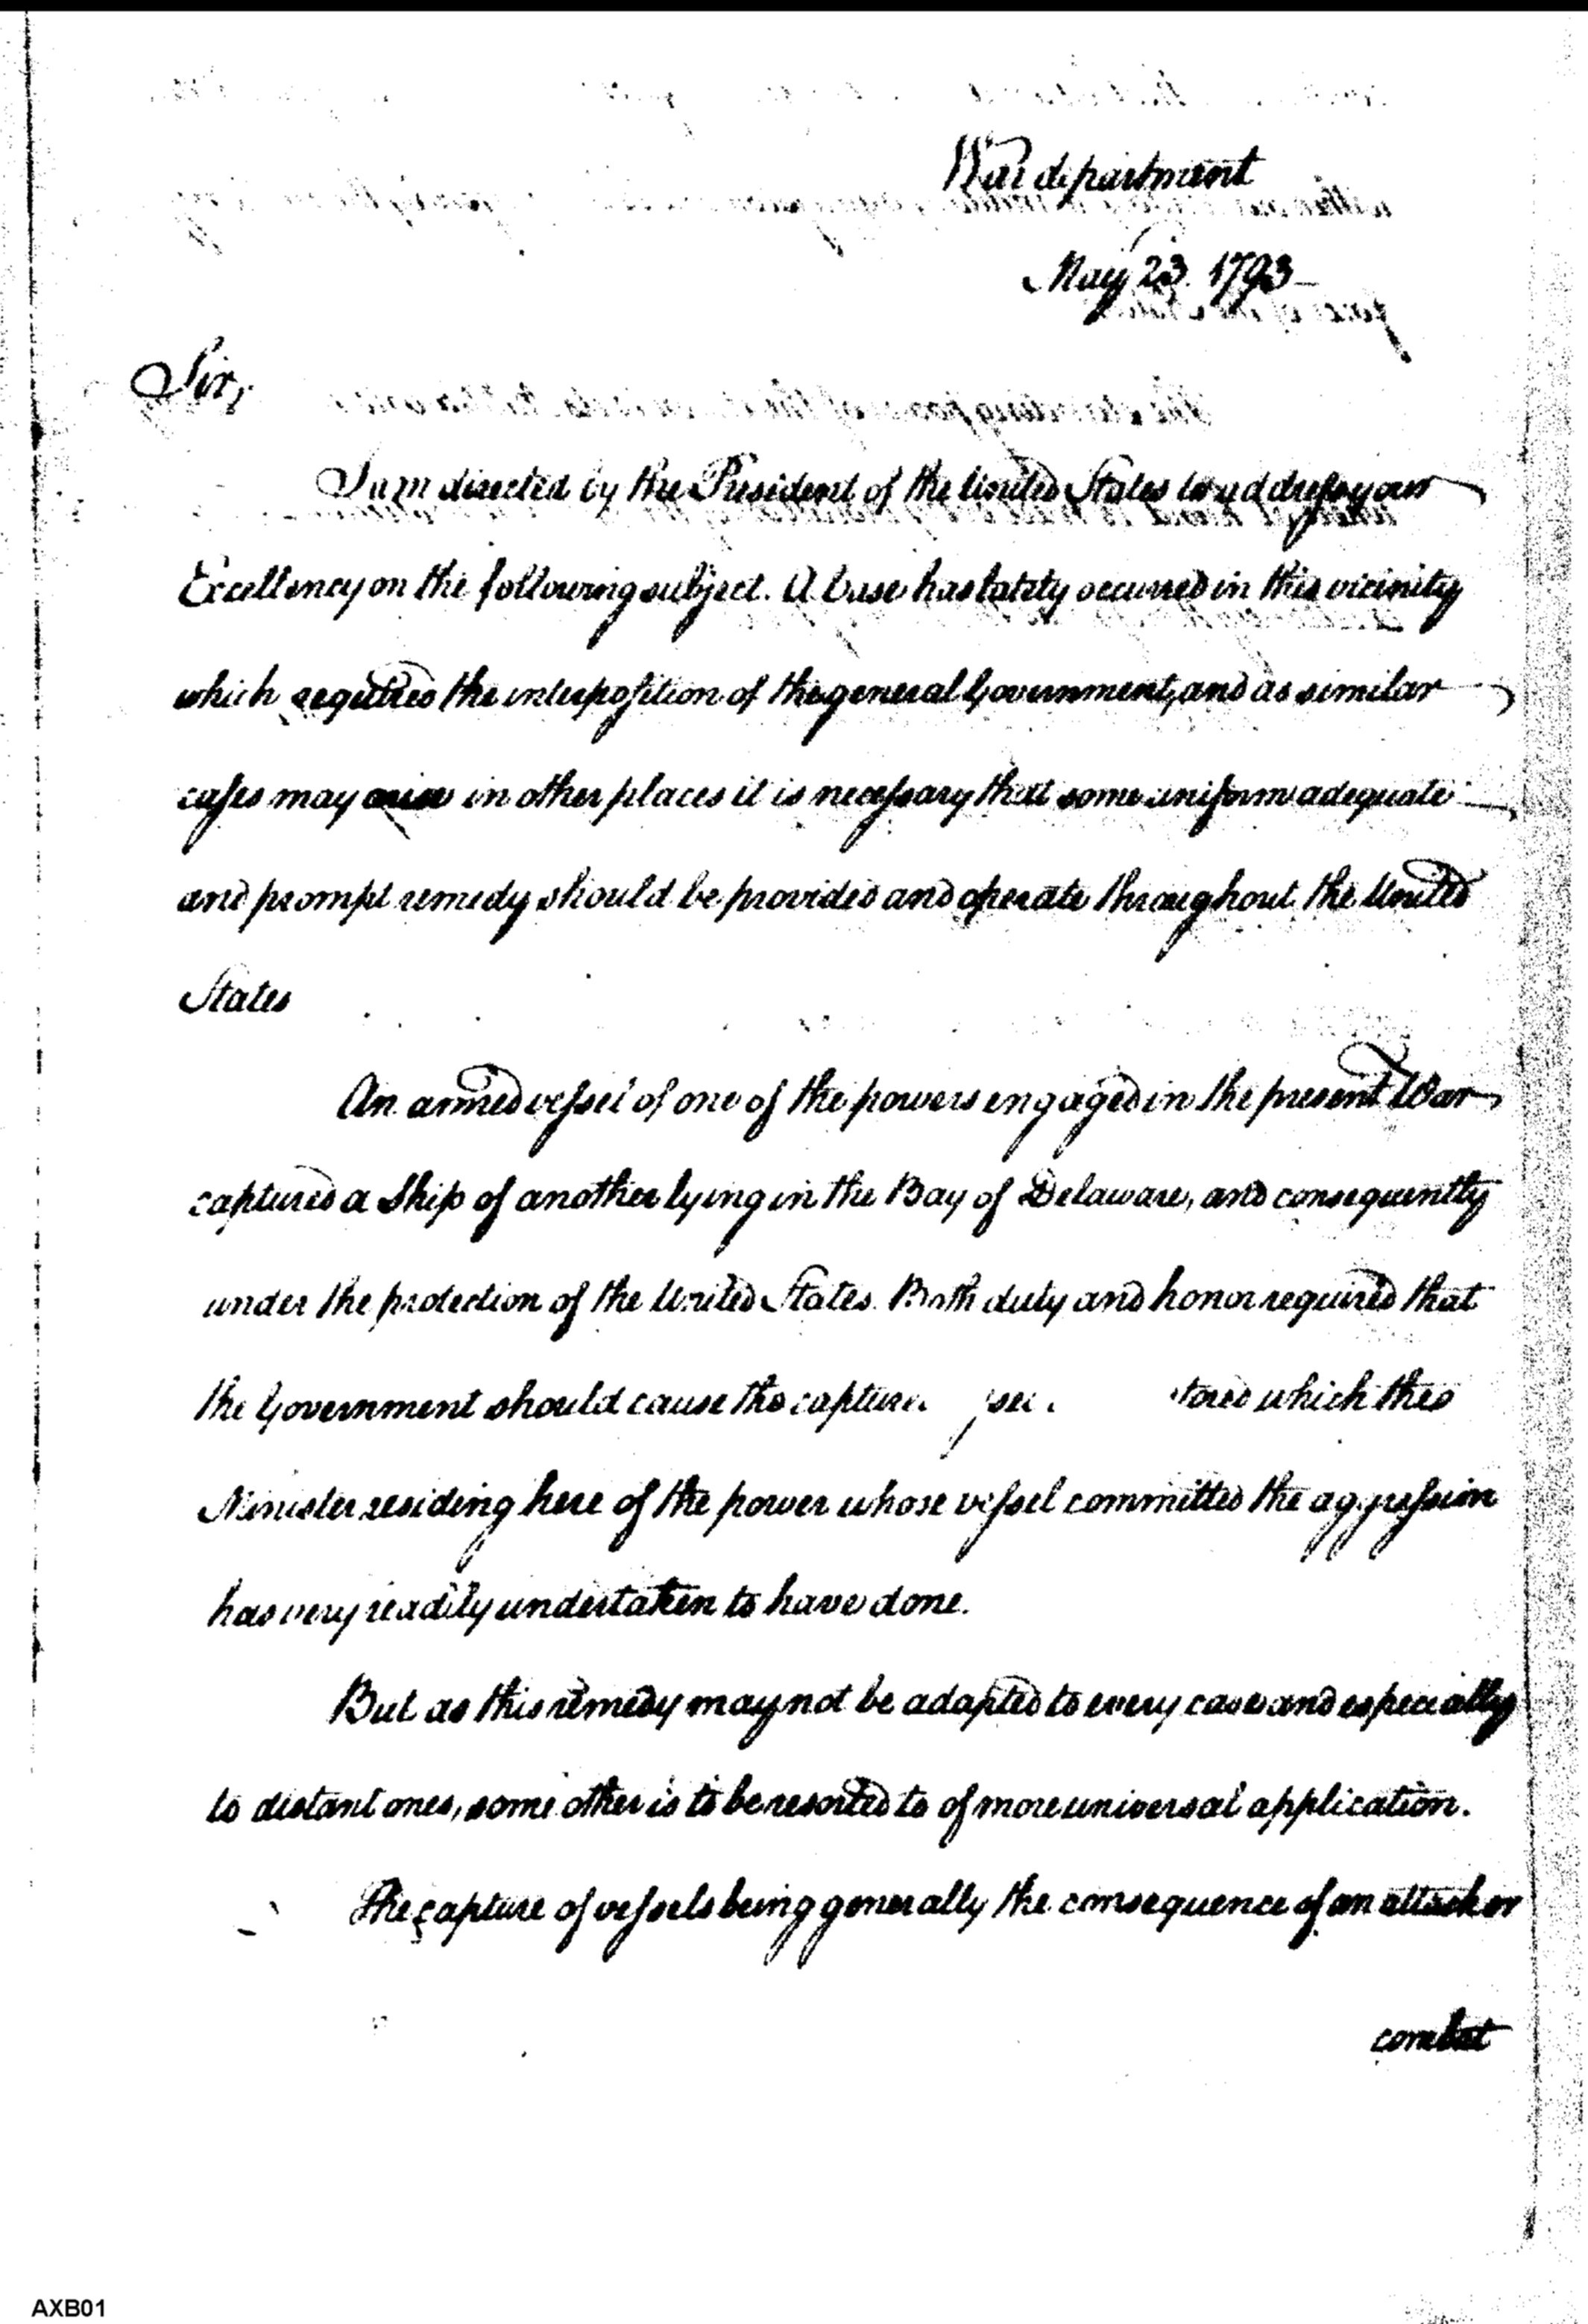 War department
May 23. 1793
Sir,
I am directed by the President of the United States to address your
Excellency on the following subject. A case has lately occurred in this vicinity
which requires the interposition of the general Government, and as similar
cases may arise in other places it is necessary that some uniform adequate
and prompt remedy should be provided and operate throughout the United
States
An armed vessel of one of the powers engaged in the present War
captured a Ship of another lying in the Bay of Delaware, and consequently
under the protection of the United States. Both duty and honor required that
the Government should cause the which the
Minister residing here of the power whose vessel committed the aggression
has very readily undertaken to have done.
But as this remedy may not be adapted to every case and especially
to distant ones, some other is to be resorted to of more universal application.
The capture of vessels being generally the consequence of an attack or
combat
AXB01